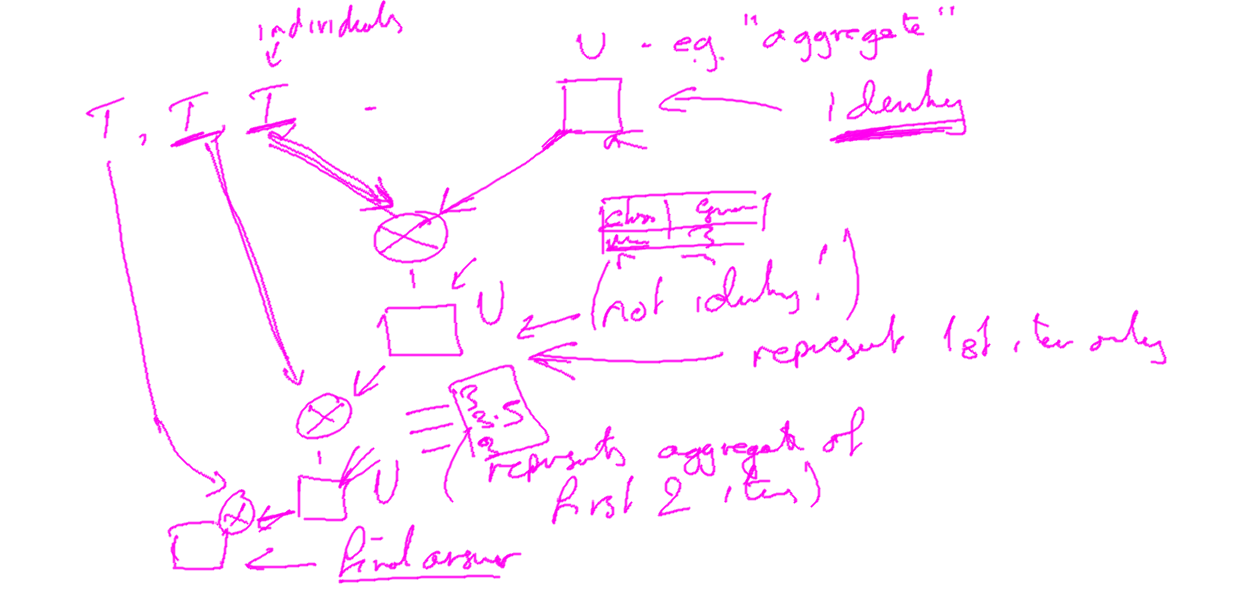 individuals
U - e.g. "aggregate"
T, T, T -
identity
class
3
U
(not identity!)
represent 1st item only
3
3.5
U
(represents aggregate of
first 2 items)
final answer